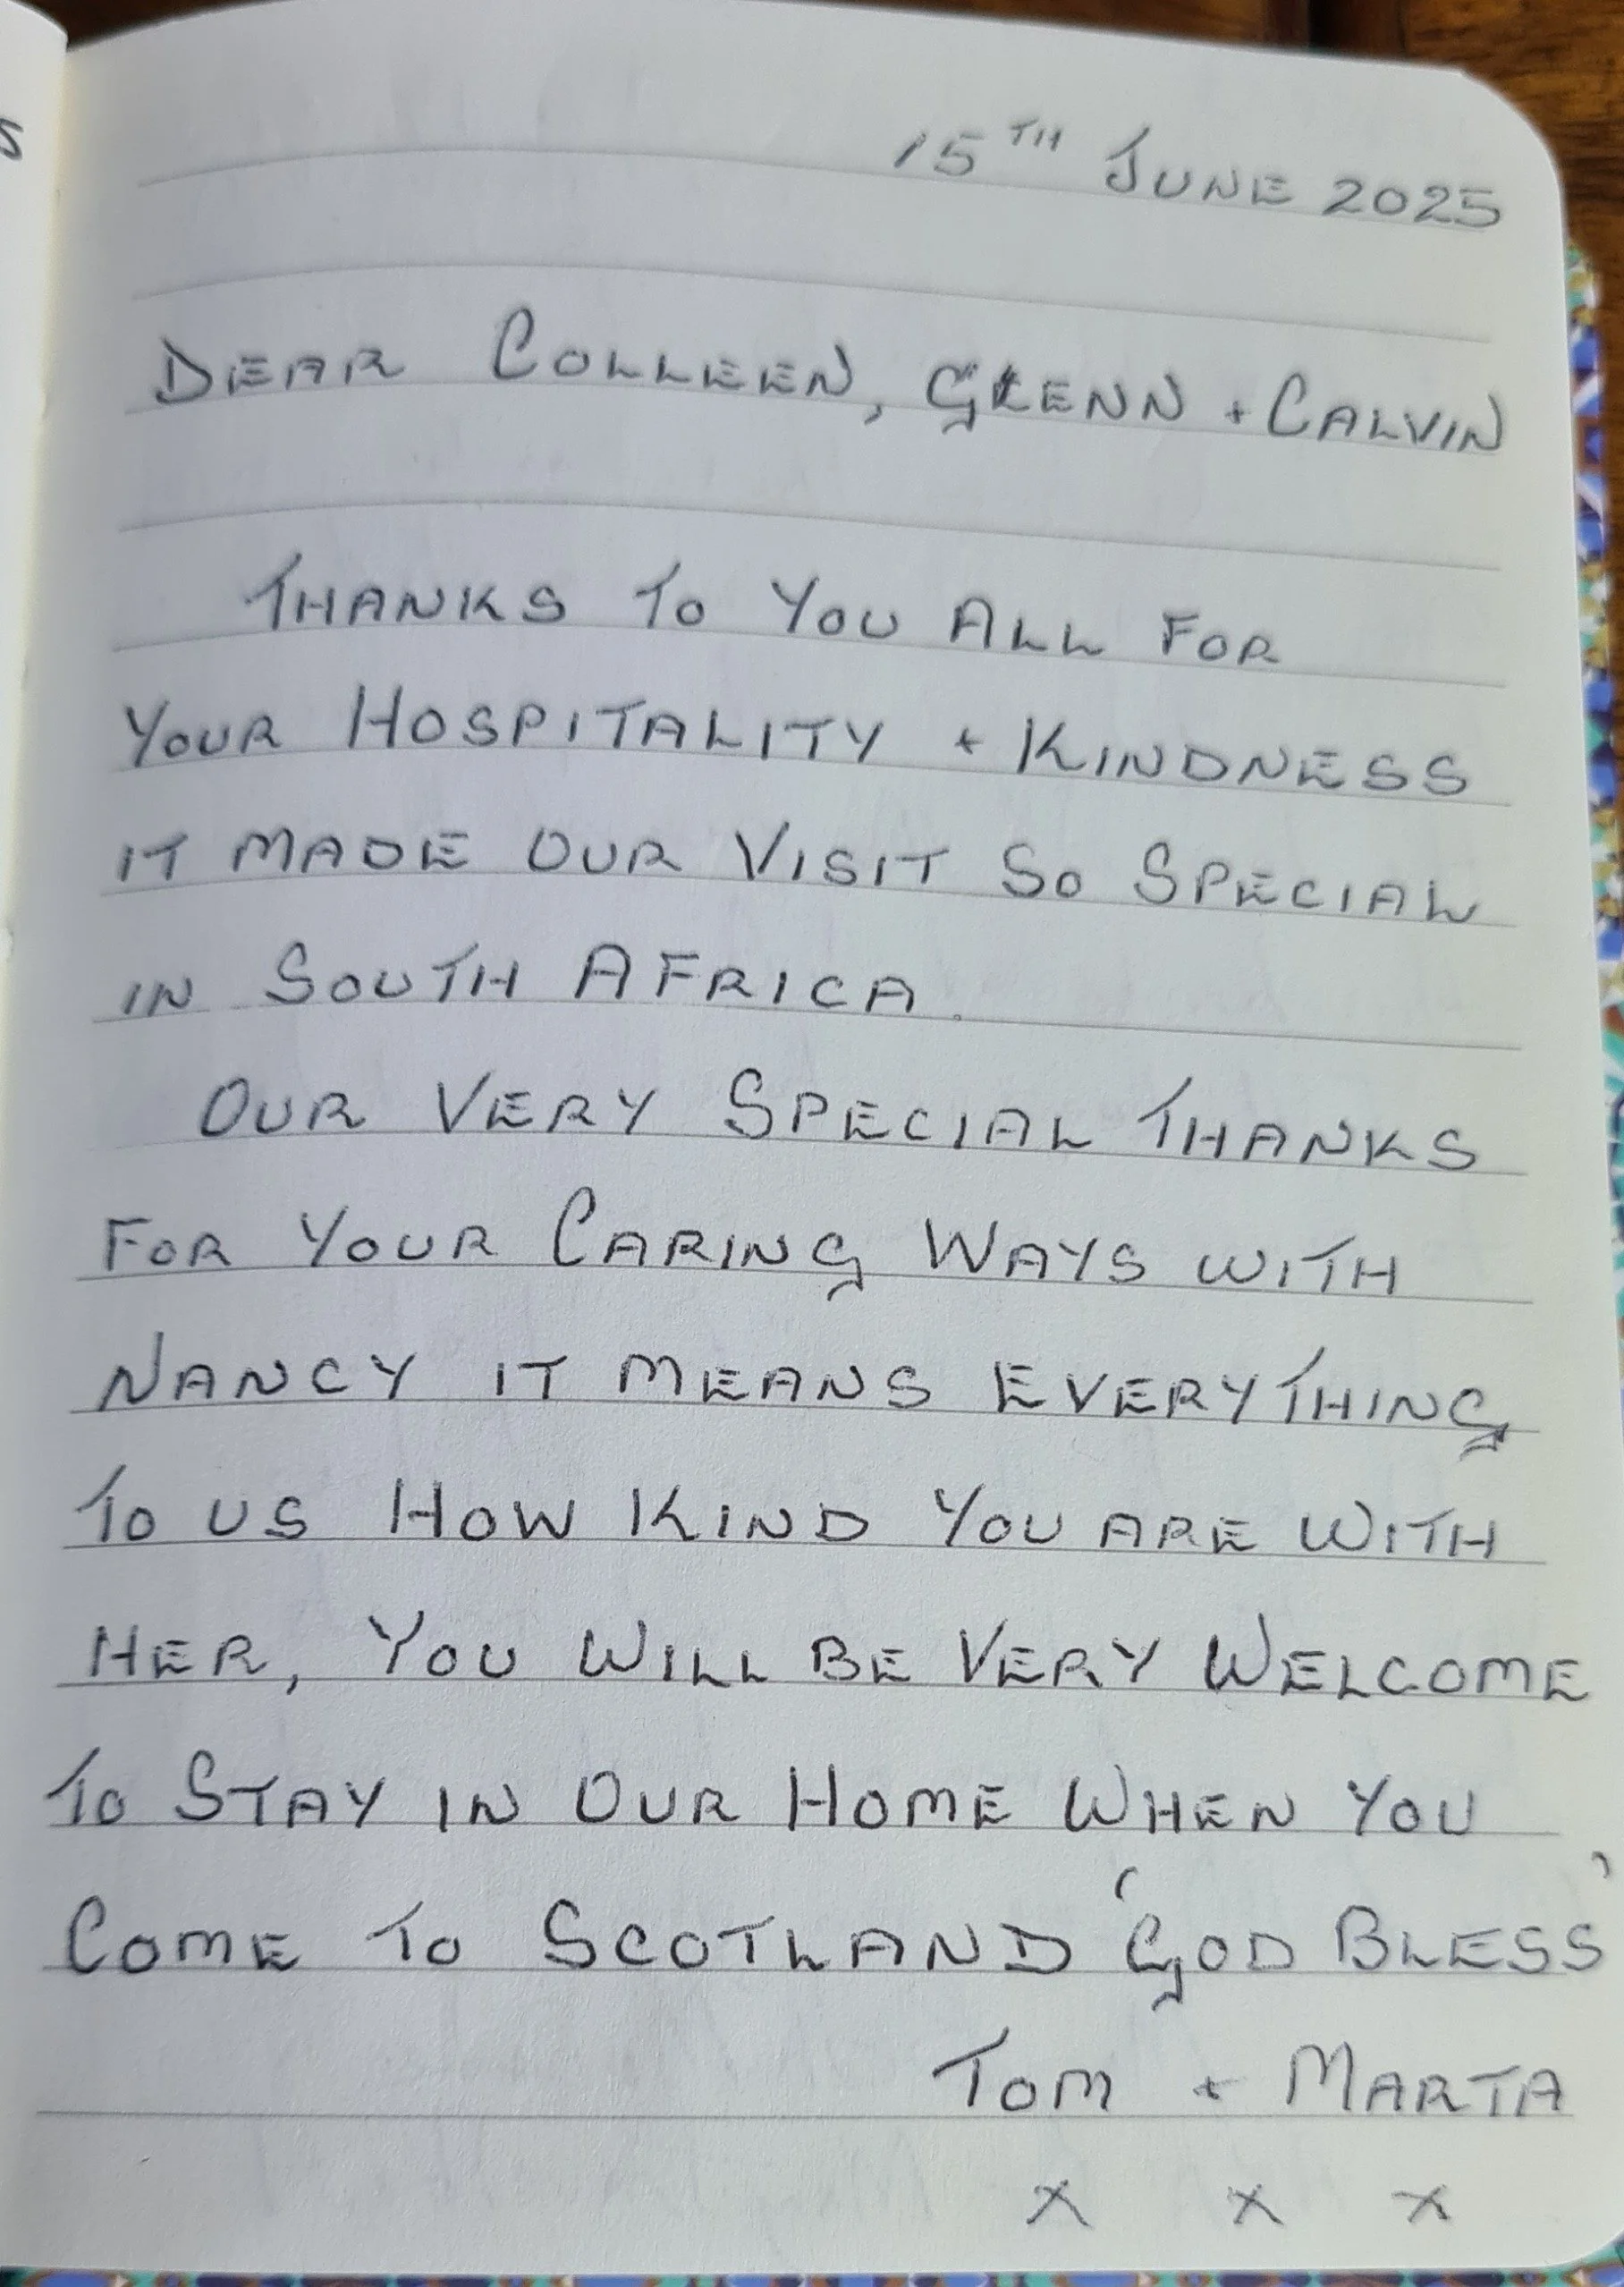 15TH JUNE 2025
DEAR COLLEEN, GLENN + CALVIN
THANKS TO YOU ALL FOR
YOUR HOSPITALITY + KINDNESS
IT MADE OUR VISIT SO SPECIAL
IN SOUTH AFRICA.
OUR VERY SPECIAL THANKS
FOR YOUR CARING WAYS WITH
NANCY IT MEANS EVERYTHING
TO US HOW KIND YOU ARE WITH
HER, YOU WILL BE VERY WELCOME
TO STAY IN OUR HOME WHEN YOU
COME TO SCOTLAND 'GOD BLESS'
TOM + MARTA
x x x